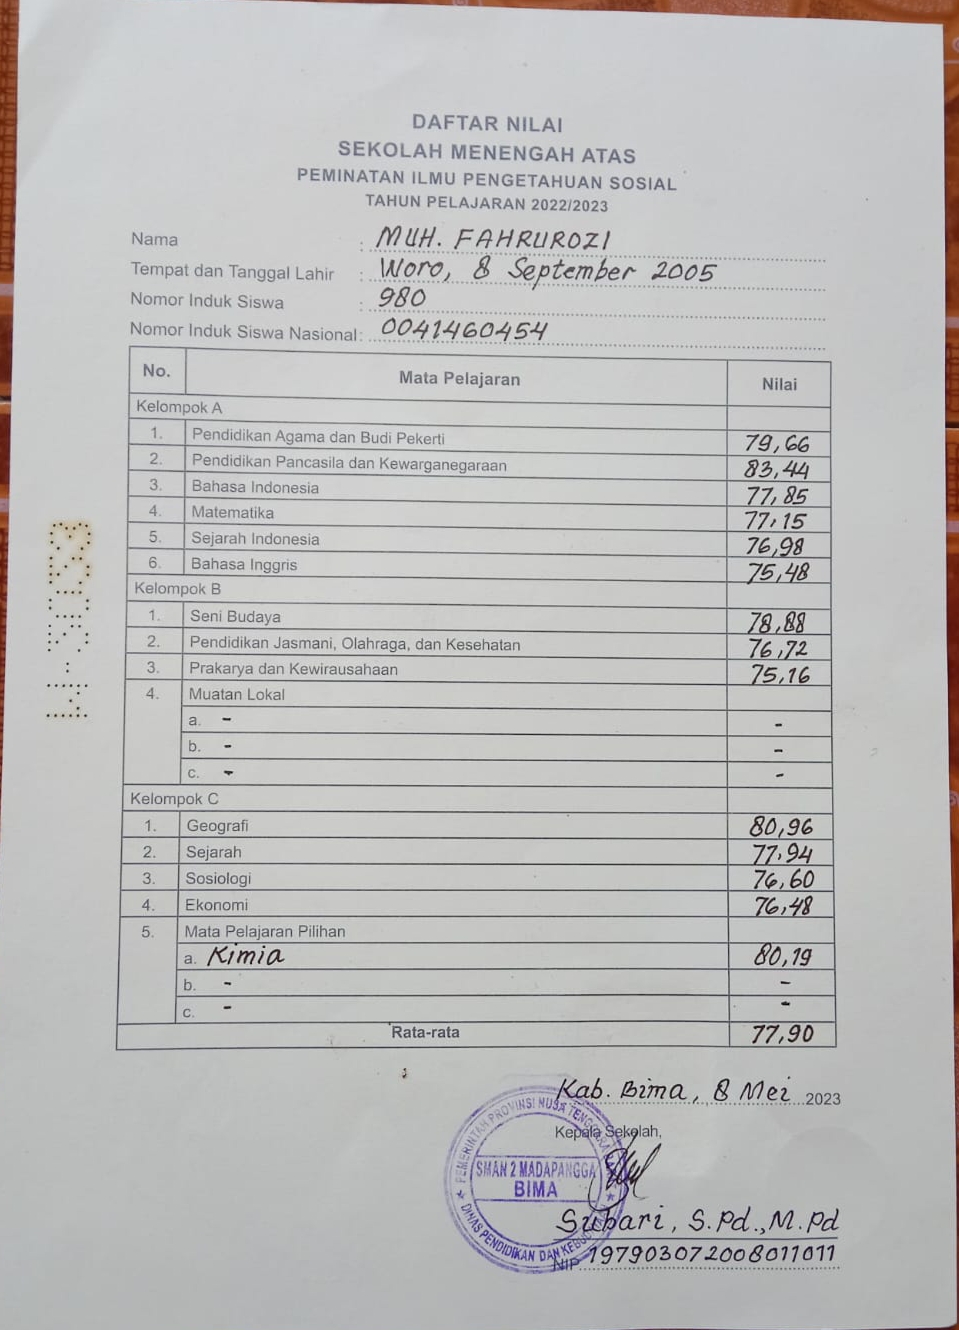 DAFTAR NILAI
SEKOLAH MENENGAH ATAS
PEMINATAN ILMU PENGETAHUAN SOSIAL
TAHUN PELAJARAN 2022/2023
Nama : MUH. FAHRUROZI
Tempat dan Tanggal Lahir : Woro, 8 September 2005
Nomor Induk Siswa : 980
Nomor Induk Siswa Nasional: 0041460454
No. Mata Pelajaran Nilai
Kelompok A
1. Pendidikan Agama dan Budi Pekerti 79,66
2. Pendidikan Pancasila dan Kewarganegaraan 83,44
3. Bahasa Indonesia 77,85
4. Matematika 77,15
5. Sejarah Indonesia 76,98
6. Bahasa Inggris 75,48
Kelompok B
1. Seni Budaya 78,88
2. Pendidikan Jasmani, Olahraga, dan Kesehatan 76,72
3. Prakarya dan Kewirausahaan 75,16
4. Muatan Lokal
a. - -
b. - -
c. - -
Kelompok C
1. Geografi 80,96
2. Sejarah 77,94
3. Sosiologi 76,60
4. Ekonomi 76,48
5. Mata Pelajaran Pilihan
a. Kimia 80,19
b. - -
c. - -
Rata-rata 77,90
Kab. Bima, 8 Mei 2023
Kepala Sekolah,
PEMERINTAH PROVINSI NUSA TENGGARA
SMAN 2 MADAPANGGA
BIMA
DINAS PENDIDIKAN DAN KEBUDAYAAN
Subari, S.Pd.,M.Pd
NIP 197903072008011011